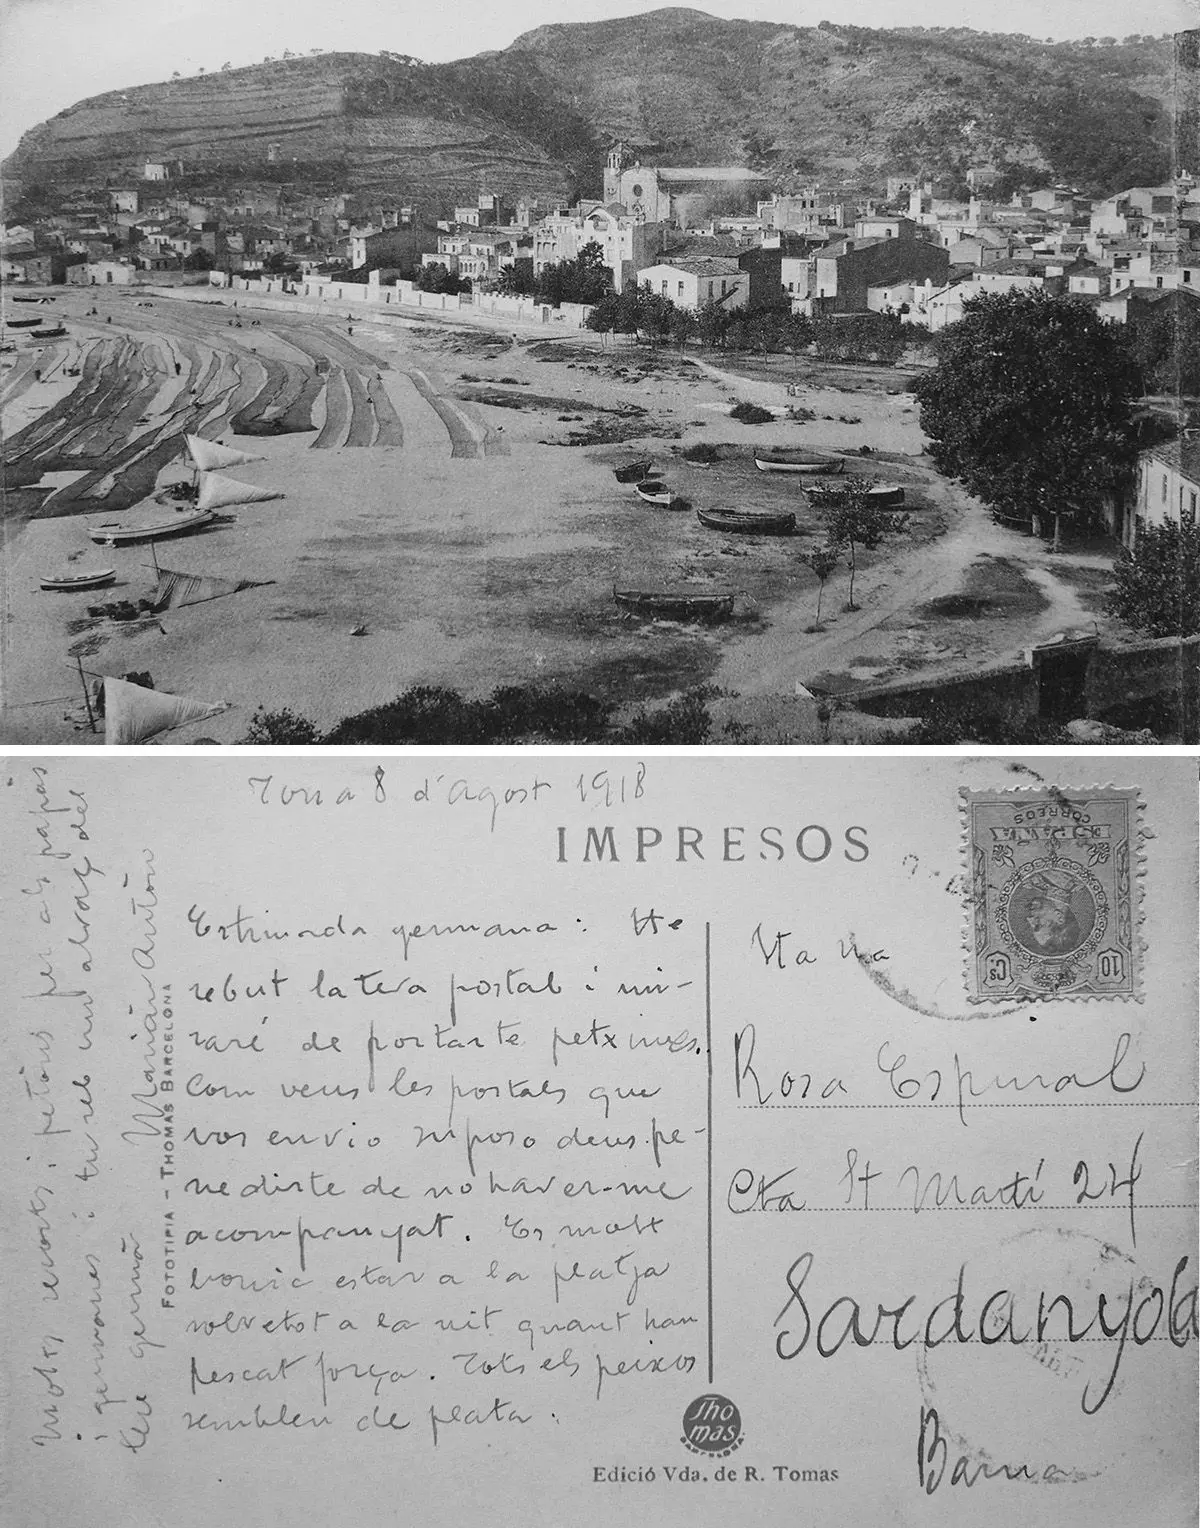 Tossa 8 d'Agost 1918
IMPRESOS
CORREOS
10 Cs
Estimada germana: He
rebut la teva postal i mi-
raré de portarte petxines.
Com veus les postals que
vos envio suposo deus pe-
nedirte de no haver-me
acompanyat. Es molt
bonic estar a la platja
sobretot a la nit quant han
pescat força. Tots els peixos
semblen de plata.
Molts records i petons per als papás
i germanes i tu reb un abraç del
teu germá
Marián Antón
FOTOTIPIA - THOMAS BARCELONA
Rosa Espinal
Cta St Martí 24
Sardanyola
Barna
Thomas
BARCELONA
Edició Vda. de R. Tomas